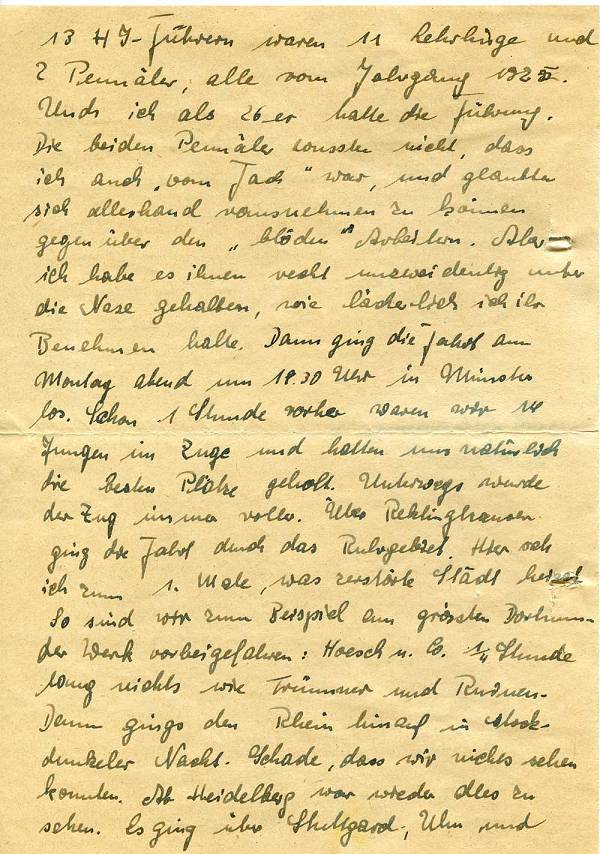 13 HJ-Führern waren 11 Lehrlinge und
2 Pennäler, alle vom Jahrgang
Und ich als 26-er hatte die Führung.
Die beiden Pennäler wussten nicht, dass
ich auch „vom Fach" war, und glaubten
sich allerhand rausnehmen zu können
gegenüber den „blöden" Arbeitern. Aber
ich habe es ihnen recht unzweideutig unter
die Nase gehalten, wie lächerlich ich ihr
Benehmen halte. Dann ging die Fahrt am
Montag abend um 19.30 Uhr in Münster
los. Schon 1 Stunde vorher waren wir 14
Jungen im Zuge und hatten uns natürlich
die besten Plätze geholt. Unterwegs wurde
der Zug immer voller. Über Reklinghausen
ging die Fahrt durch das Ruhrgebiet. Hier sah
ich zum 1. Male, was zerstörte Städt heisst
So sind wir zum Beispiel am grössten Dortmun-
der Werk vorbeigefahren: Hoesch u. Co. 1/4 Stunde
lang nichts wie Trümmer und Ruinen.
Dann gings den Rhein hinauf in stock-
dunkeler Nacht. Schade, dass wir nichts sehen
konnten. Ab Heidelberg war wieder alles zu
sehen. Es ging über Stuttgard, Ulm und